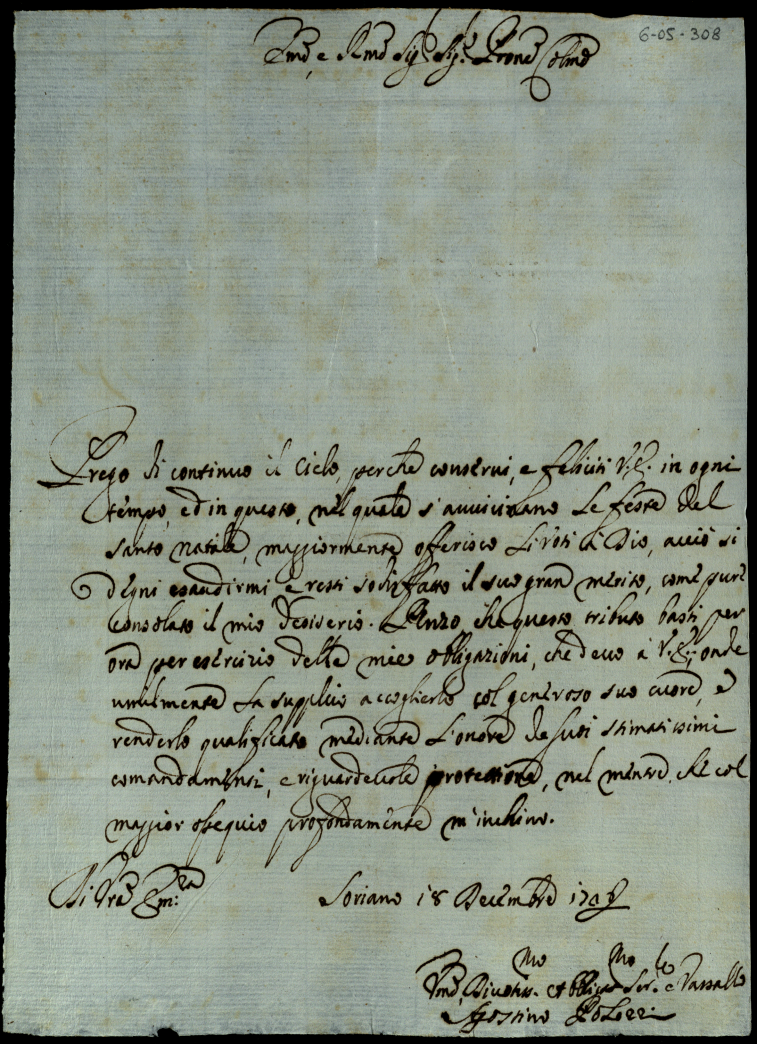 6-05-308
Emo, e Rmo Sigr. Sigr. Prone Colmo
Prego di continuo il Cielo, perche conserui, e feliciti V.E. in ogni
tempo, ed in questo, nel quale s'auuicinano le feste del
santo natale, maggiormente offerisco li voti à Dio, acciò si
degni esaudirmi e resti sodisfatto il suo gran merito, come pure
consolato il mio desiderio. Penzo, che questo tributo basti per
ora per esercizio delle mie obbligazioni, che deuo à V.E., onde
umilmente la supplico accoglierlo col generoso suo cuore, e
renderlo qualificato mediante l'onore de suoi stimatissimi
comandamenti, e riguardeuole protettione, nel mentre che col
maggior ossequio profondamente m'inchino.
Di Vra Em:za
Soriano 18 Decembre
Vmo, Diuotiss.mo et Obbligmo Ser.e e Vassallo
Agostino